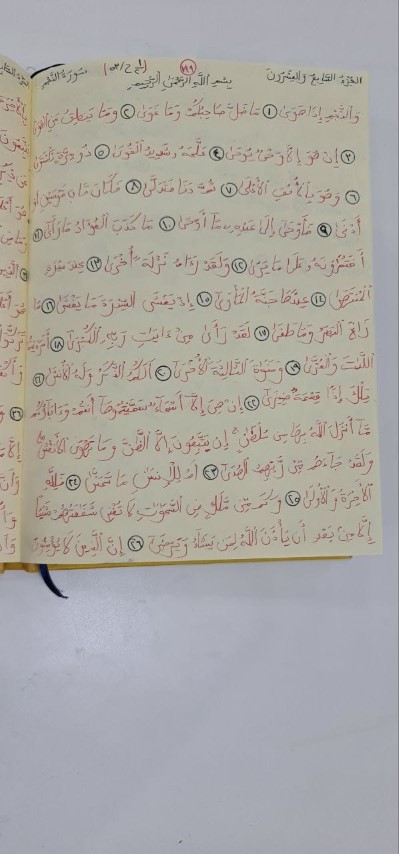 الجزء السابع والعشرون
١٩٩
سورة النجم
بسم الله الرحمن الرحيم
وَالنَّجْمِ إِذَا هَوَىٰ ١ مَا ضَلَّ صَاحِبُكُمْ وَمَا غَوَىٰ ٢ وَمَا يَنطِقُ عَنِ الْهَوَىٰ
٣ إِنْ هُوَ إِلَّا وَحْيٌ يُوحَىٰ ٤ عَلَّمَهُ شَدِيدُ الْقُوَىٰ ٥ ذُو مِرَّةٍ فَاسْتَوَىٰ
٦ وَهُوَ بِالْأُفُقِ الْأَعْلَىٰ ٧ ثُمَّ دَنَا فَتَدَلَّىٰ ٨ فَكَانَ قَابَ قَوْسَيْنِ أَوْ
أَدْنَىٰ ٩ فَأَوْحَىٰ إِلَىٰ عَبْدِهِ مَا أَوْحَىٰ ١٠ مَا كَذَبَ الْفُؤَادُ مَا رَأَىٰ ١١
أَفَتُمَارُونَهُ عَلَىٰ مَا يَرَىٰ ١٢ وَلَقَدْ رَآهُ نَزْلَةً أُخْرَىٰ ١٣ عِندَ سِدْرَةِ
الْمُنتَهَىٰ ١٤ عِندَهَا جَنَّةُ الْمَأْوَىٰ ١٥ إِذْ يَغْشَى السِّدْرَةَ مَا يَغْشَىٰ ١٦ مَا
زَاغَ الْبَصَرُ وَمَا طَغَىٰ ١٧ لَقَدْ رَأَىٰ مِنْ آيَاتِ رَبِّهِ الْكُبْرَىٰ ١٨ أَفَرَأَيْتُمُ
اللَّاتَ وَالْعُزَّىٰ ١٩ وَمَنَاةَ الثَّالِثَةَ الْأُخْرَىٰ ٢٠ أَلَكُمُ الذَّكَرُ وَلَهُ الْأُنثَىٰ ٢١
تِلْكَ إِذًا قِسْمَةٌ ضِيزَىٰ ٢٢ إِنْ هِيَ إِلَّا أَسْمَاءٌ سَمَّيْتُمُوهَا أَنتُمْ وَآبَاؤُكُم
مَّا أَنزَلَ اللَّهُ بِهَا مِن سُلْطَانٍ إِن يَتَّبِعُونَ إِلَّا الظَّنَّ وَمَا تَهْوَى الْأَنفُسُ
وَلَقَدْ جَاءَهُم مِّن رَّبِّهِمُ الْهُدَىٰ ٢٣ أَمْ لِلْإِنسَانِ مَا تَمَنَّىٰ ٢٤ فَلِلَّهِ
الْآخِرَةُ وَالْأُولَىٰ ٢٥ وَكَم مِّن مَّلَكٍ فِي السَّمَاوَاتِ لَا تُغْنِي شَفَاعَتُهُمْ شَيْئًا
إِلَّا مِن بَعْدِ أَن يَأْذَنَ اللَّهُ لِمَن يَشَاءُ وَيَرْضَىٰ ٢٦ إِنَّ الَّذِينَ لَا يُؤْمِنُونَ